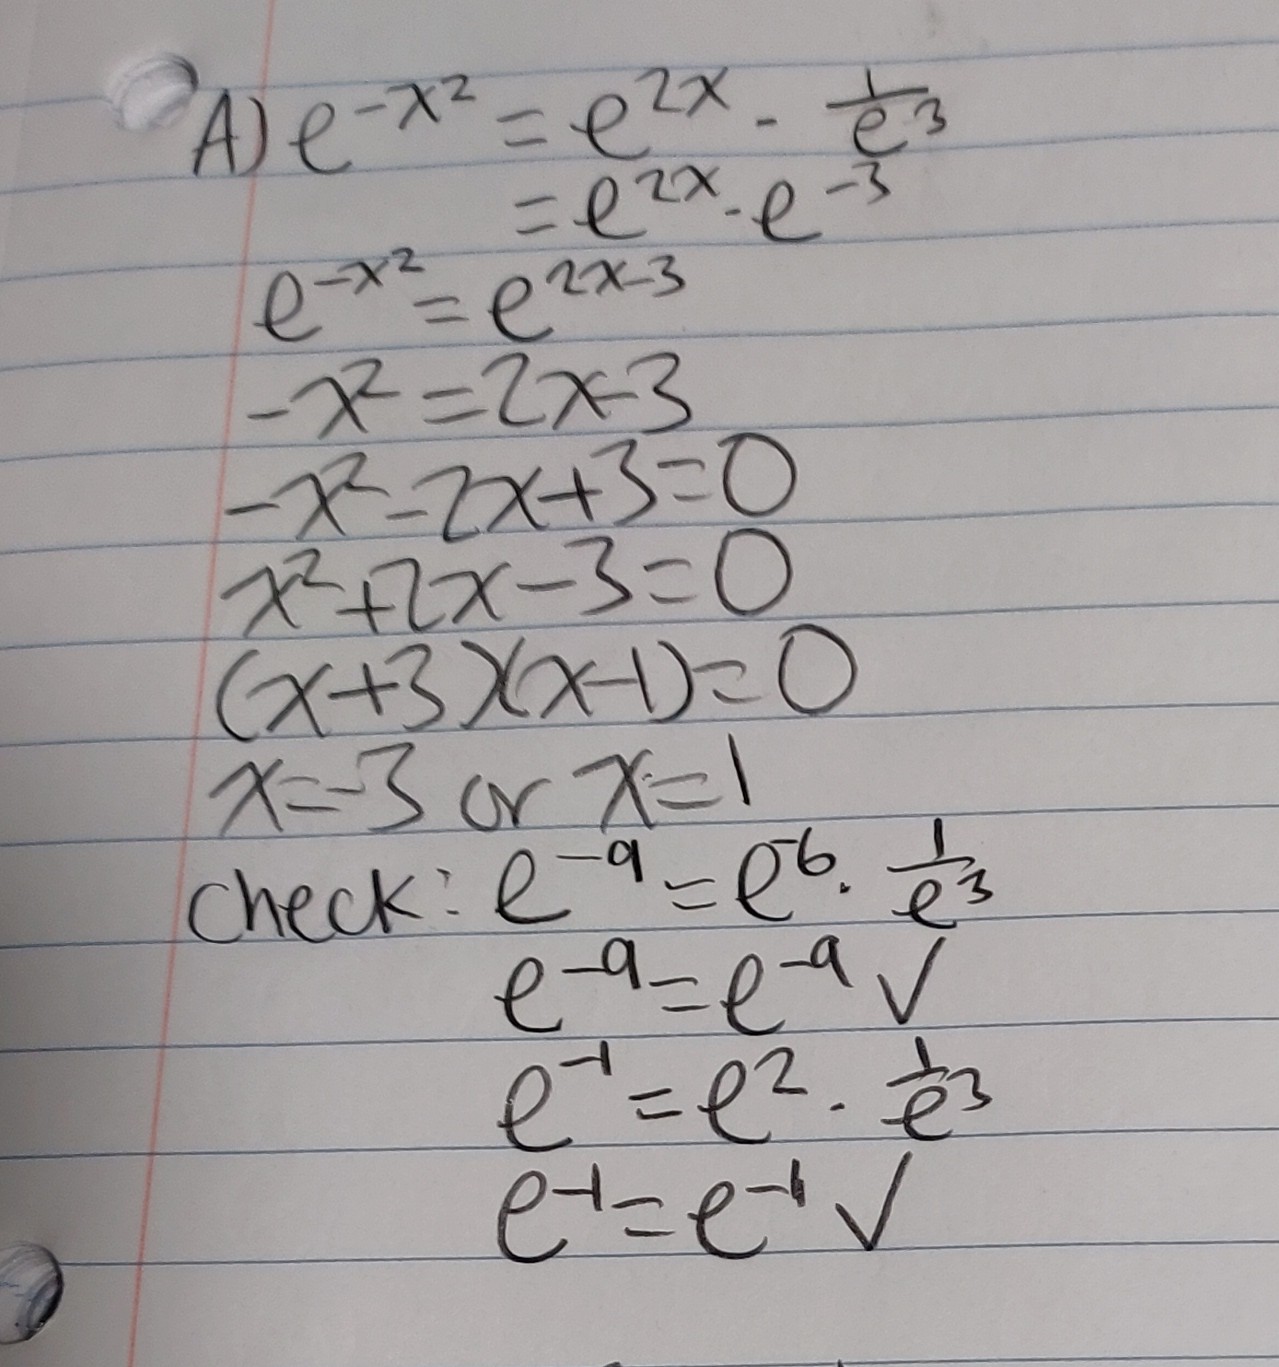 A) e^{-x^2} = e^{2x} · \frac{1}{e^3}
= e^{2x} · e^{-3}
e^{-x^2} = e^{2x-3}
-x^2 = 2x-3
-x^2-2x+3=0
x^2+2x-3=0
(x+3)(x-1)=0
x=-3 or x=1
check: e^{-9} = e^{-6} · \frac{1}{e^3}
e^{-9} = e^{-9} ✓
e^{-1} = e^2 · \frac{1}{e^3}
e^{-1} = e^{-1} ✓